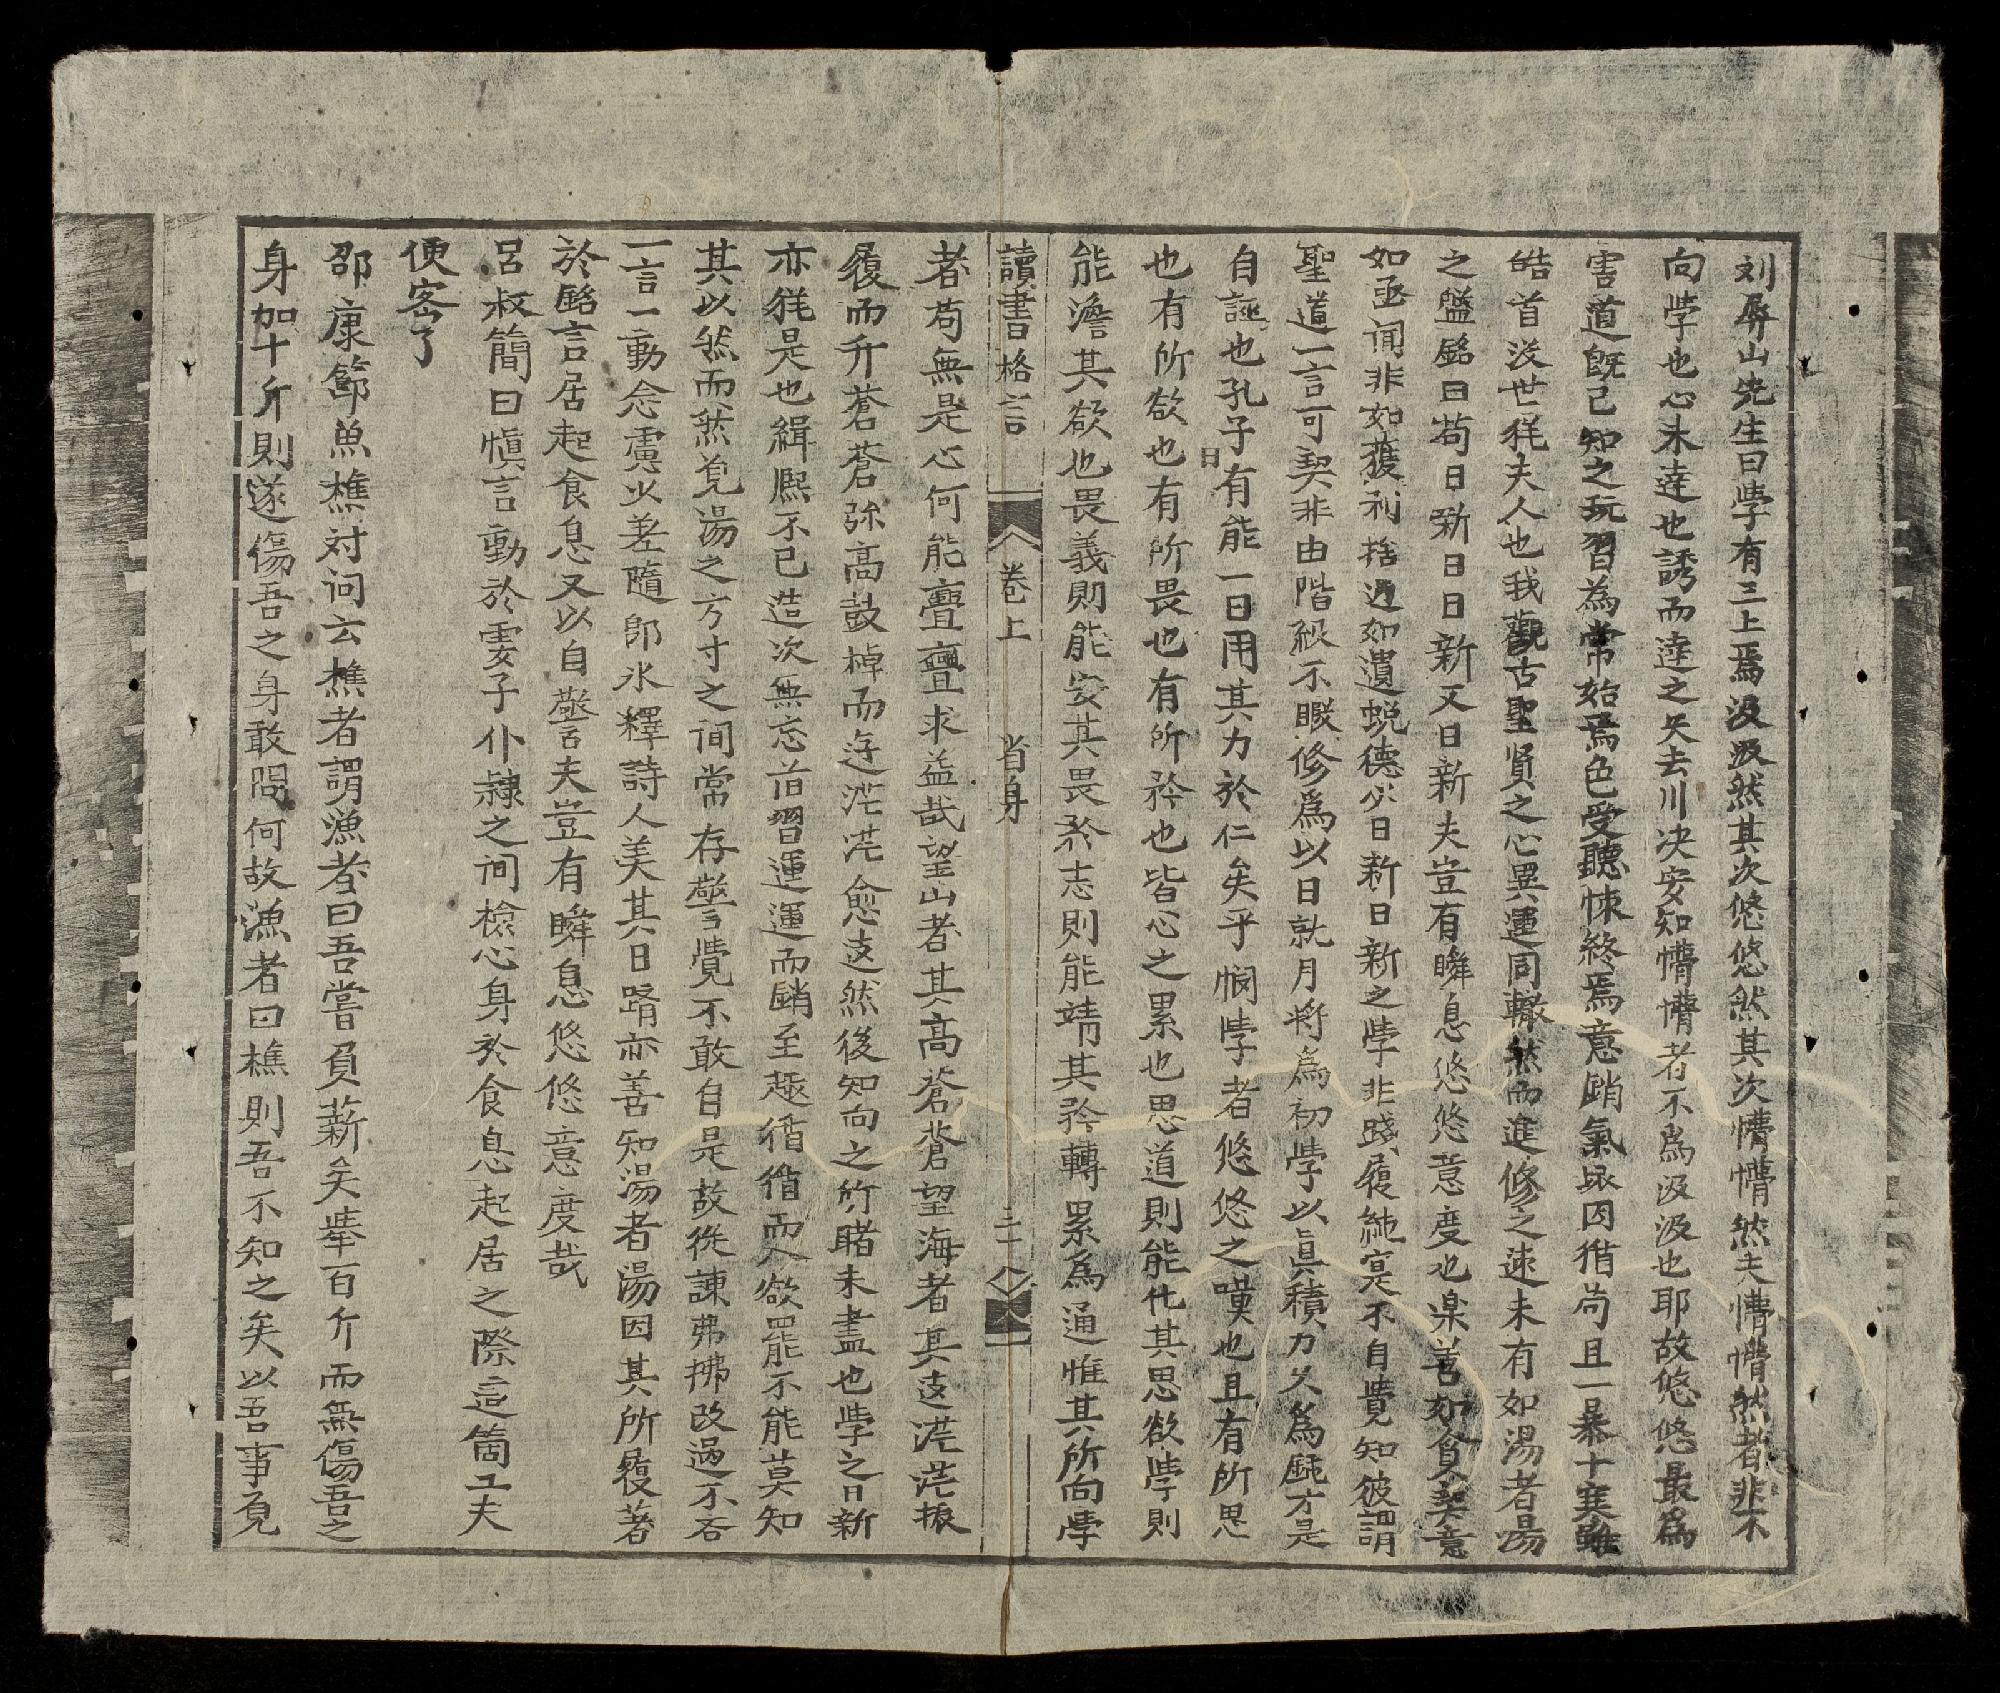 刘屏山先生曰斈有三上焉汲汲然其次悠悠然其次懵懵然夫懵懵然者非不
向斈也心未達也誘而達之矢去川决安知懵懵者不爲汲汲也耶故悠悠最爲
害道既已知之玩習爲常始焉色受聽悚終焉意銷氣泯因循尚且一暴十寒雖
皓首没世猶夫人也我觀古聖賢之心異運同轍然而進修之速未有如湯者湯
之盤銘曰苟日新日日新又日新夫豈有瞬息悠悠意度也楽善如貪契意
如亟聞非如獲利捨過如遺蛻德必日新日新之斈非踐履純寔不自覺知彼謂
聖道一言可契非由階級不暇修爲以日就月將爲初斈以眞積力久爲鈍才是
自誣也孔子曰有能一日用其力於仁矣乎憫斈者悠悠之嘆也且有所思
也有所欲也有所畏也有所矜也皆心之累也思道則能化其思欲斈則
能澹其欲也畏義則能安其畏矜志則能靖其矜轉累爲通惟其所向斈
讀書格言 卷上 省身 三十
者苟無是心何能亹亹求益哉望山者其高蒼蒼望海者其远茫茫振
履而升蒼蒼弥高鼓棹而逰茫茫愈远然後知向之所睹未盡也斈之日新
亦猶是也緝熙不已造次無忘旨習運運而銷至趣循循而入欲罷不能莫知
其以然而然覓湯之方寸之间常存警覺不敢自是故從諫弗拂改過不吝
一言一動念慮少差隨即氷釋詩人美其日躋亦善知湯者湯因其所履著
於銘言居起食息又以自警夫豈有瞬息悠悠意度哉
呂叔簡曰慎言動於妻子仆隷之间檢心身於食息起居之際這箇工夫
便密了
邵康節魚樵対问云樵者謂漁者曰吾嘗負薪矣挙百斤而無傷吾之
身加十斤則遂傷吾之身敢問何故漁者曰樵則吾不知之矣以吾事覓